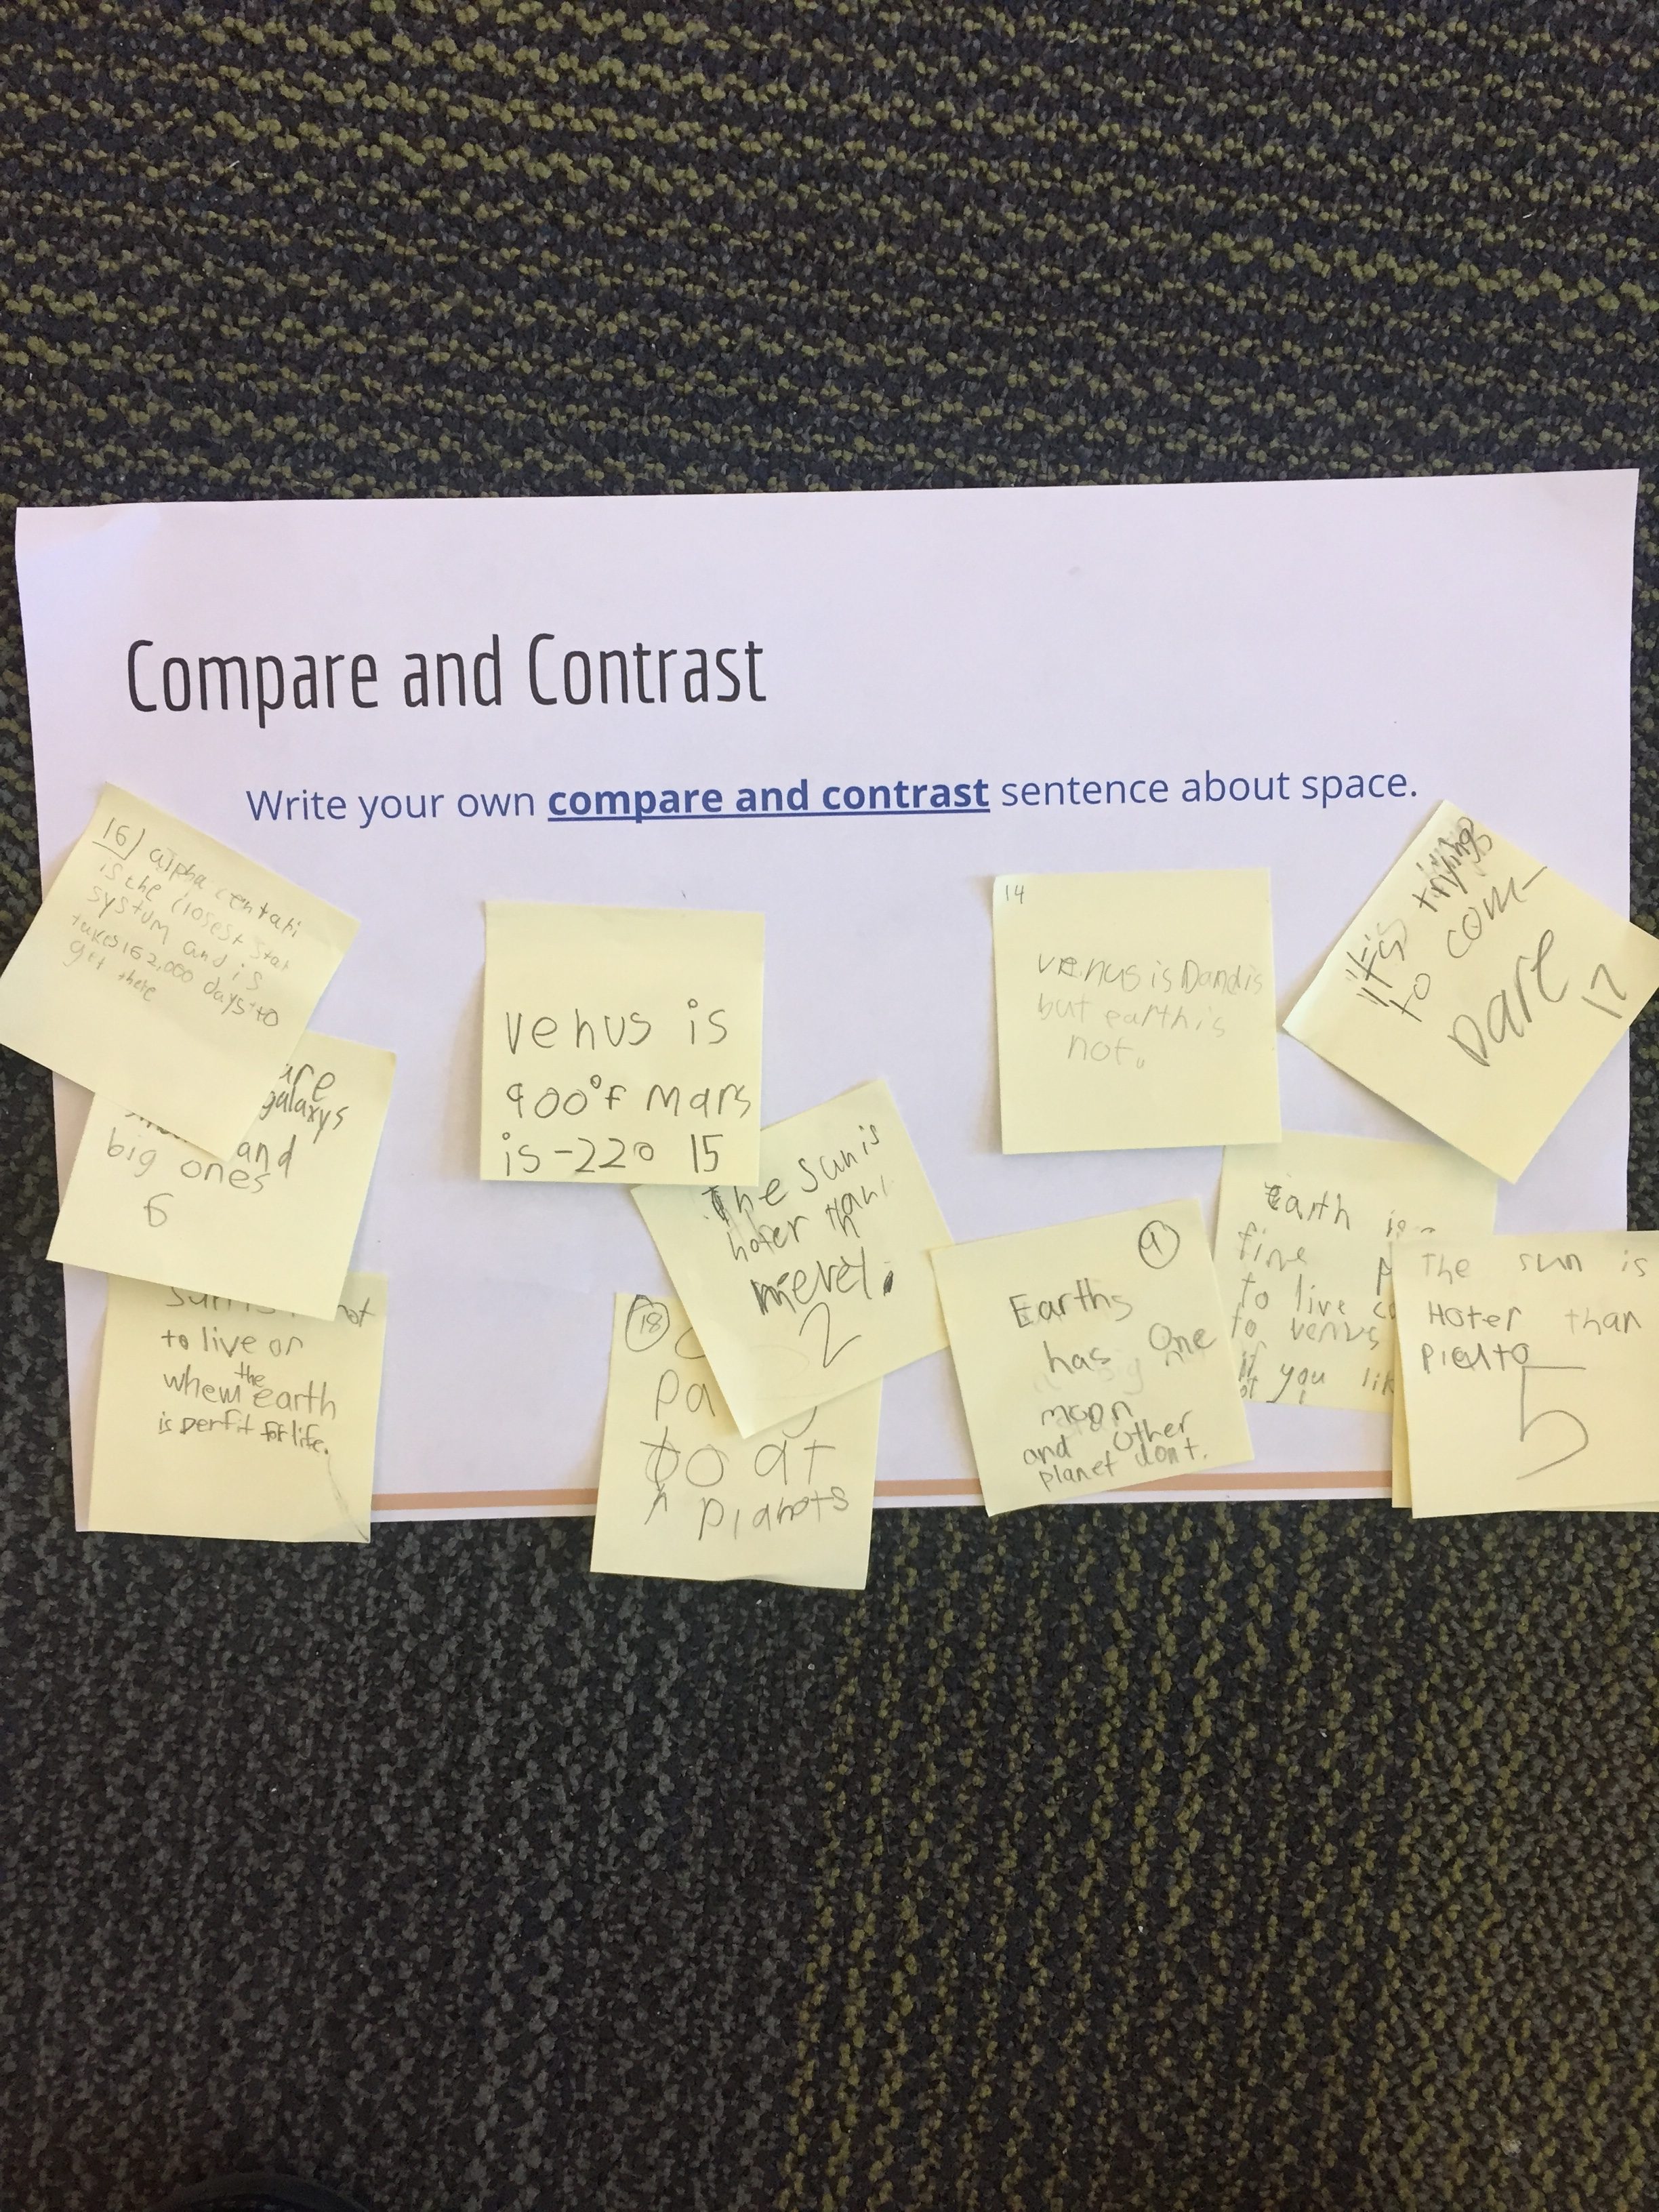 Compare and Contrast
Write your own compare and contrast sentence about space.
16) alpha centari
is the closest star
systum and is
takes 162,000 days to
get there
are
galaxys
and
big ones
6
not
to live on
when the earth
is perfit for life.
venus is
900°f mars
is -220 15
The sun is
hoter than
2
18
pa
to at
planots
14
venus is
but earth is
not.
it's trying
to com-
pare
17
9
Earths
has One
moon
and other
planet dont.
Earth is
fine
to live
to venus
if you lik
The sun is
Hoter than
plalto
5